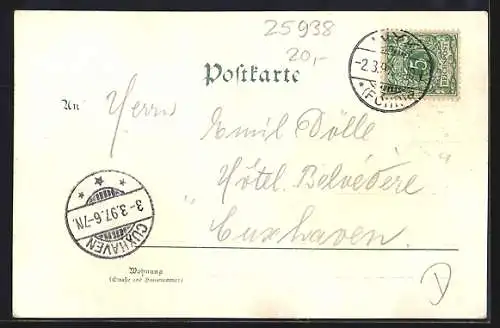 25938
20,-
Postkarte
2.3.97
5
REICHSPOST
An
Herrn
Emil Dölle
Hôtel Belvédere
Cuxhaven.
3-3.97.6-7N.
CUXHAVEN
Wohnung
(Straße und Hausnummer)
D